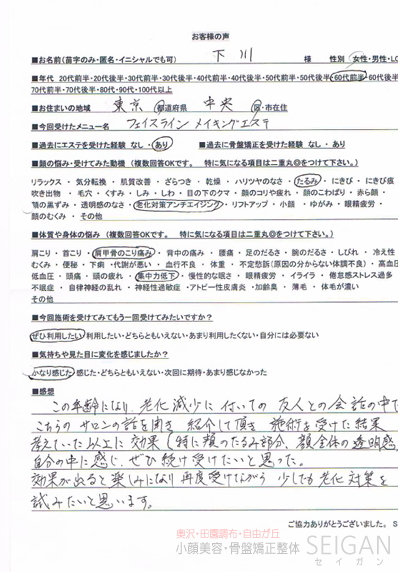 お客様の声
■お名前(苗字のみ・匿名・イニシャルでも可) 下川 様 性別 女性・男性・LG
■年代 20代前半・20代後半・30代前半・30代後半・40代前半・40代後半・50代前半・50代後半・60代前半・60代後半
70代前半・70代後半・80代・90代・100代以上
■お住まいの地域 東京 都道府県 中央 区・市在住
■今回受けたメニュー名 フェイスラインメイキングエステ
■過去にエステを受けた経験 なし・あり ■過去に骨盤矯正を受けた経験 なし・あり
■顔の悩み・受けてみた動機(複数回答OKです。 特に気になる項目は二重丸◎をつけて下さい。)
リラックス ・ 気分転換 ・ 肌質改善 ・ ざらつき ・ 乾燥 ・ ハリツヤのなさ ・ たるみ ・ にきび ・ にきび痕
吹き出物 ・ 毛穴 ・ くすみ ・ しみ ・ しわ ・ 目の下のクマ ・ 顔のコリや疲れ ・ 顔のこわばり ・ 赤ら顔 ・
顎の黒ずみ ・ 透明感のなさ ・ 老化対策アンチエイジング ・ リフトアップ ・ 小顔 ・ ゆがみ ・ 眼精疲労 ・
顔のむくみ ・ その他
■体質や身体の悩み(複数回答OKです。 特に気になる項目は二重丸◎をつけて下さい。)
肩こり ・ 首こり ・ 肩甲骨のこり痛み ・ 背中の痛み ・ 腰痛 ・ 足のだるさ ・ 腕のだるさ ・ しびれ ・ 冷え性
むくみ ・ 便秘 ・ 下痢 ・ 代謝が悪い ・ 血行不良 ・ 体重 ・ 不定愁訴(原因の分からない体調不良) ・ 高血圧
低血圧 ・ 頭痛 ・ 頭の疲れ ・ 集中力低下 ・ 慢性的な眠さ ・ 眼精疲労 ・ イライラ ・ 倦怠感ストレス過多
不眠症 ・ 自律神経の乱れ ・ 神経性過敏症 ・ アトピー性皮膚炎 ・ 加齢臭 ・ 薄毛 ・ 体毛が濃い
その他
■今回施術を受けてみてもう一回受けてみたいですか?
ぜひ利用したい・利用したい・どちらともいえない・あまり利用したくない・自分には必要ない
■気持ちや見た目に変化を感じましたか?
かなり感じた・感じた・どちらともいえない・次回に期待・あまり感じなかった
■感想
この年齢になり、老化減少に付いての友人との会話の中で
こちらのサロンの話を聞き紹介して頂き施術を受けた結果
考えていた以上に効果(特に頬のたるみ部分、顔全体の透明感
自分の中に感じ、ぜひ続け受けたいと思った。
効果が出ると楽しみになり再度受けながら少しでも老化対策を
試みたいと思います。
ご協力ありがとうございました。 S
奥沢・田園調布・自由が丘
小顔美容・骨盤矯正整体 SEIGAN
セイガン